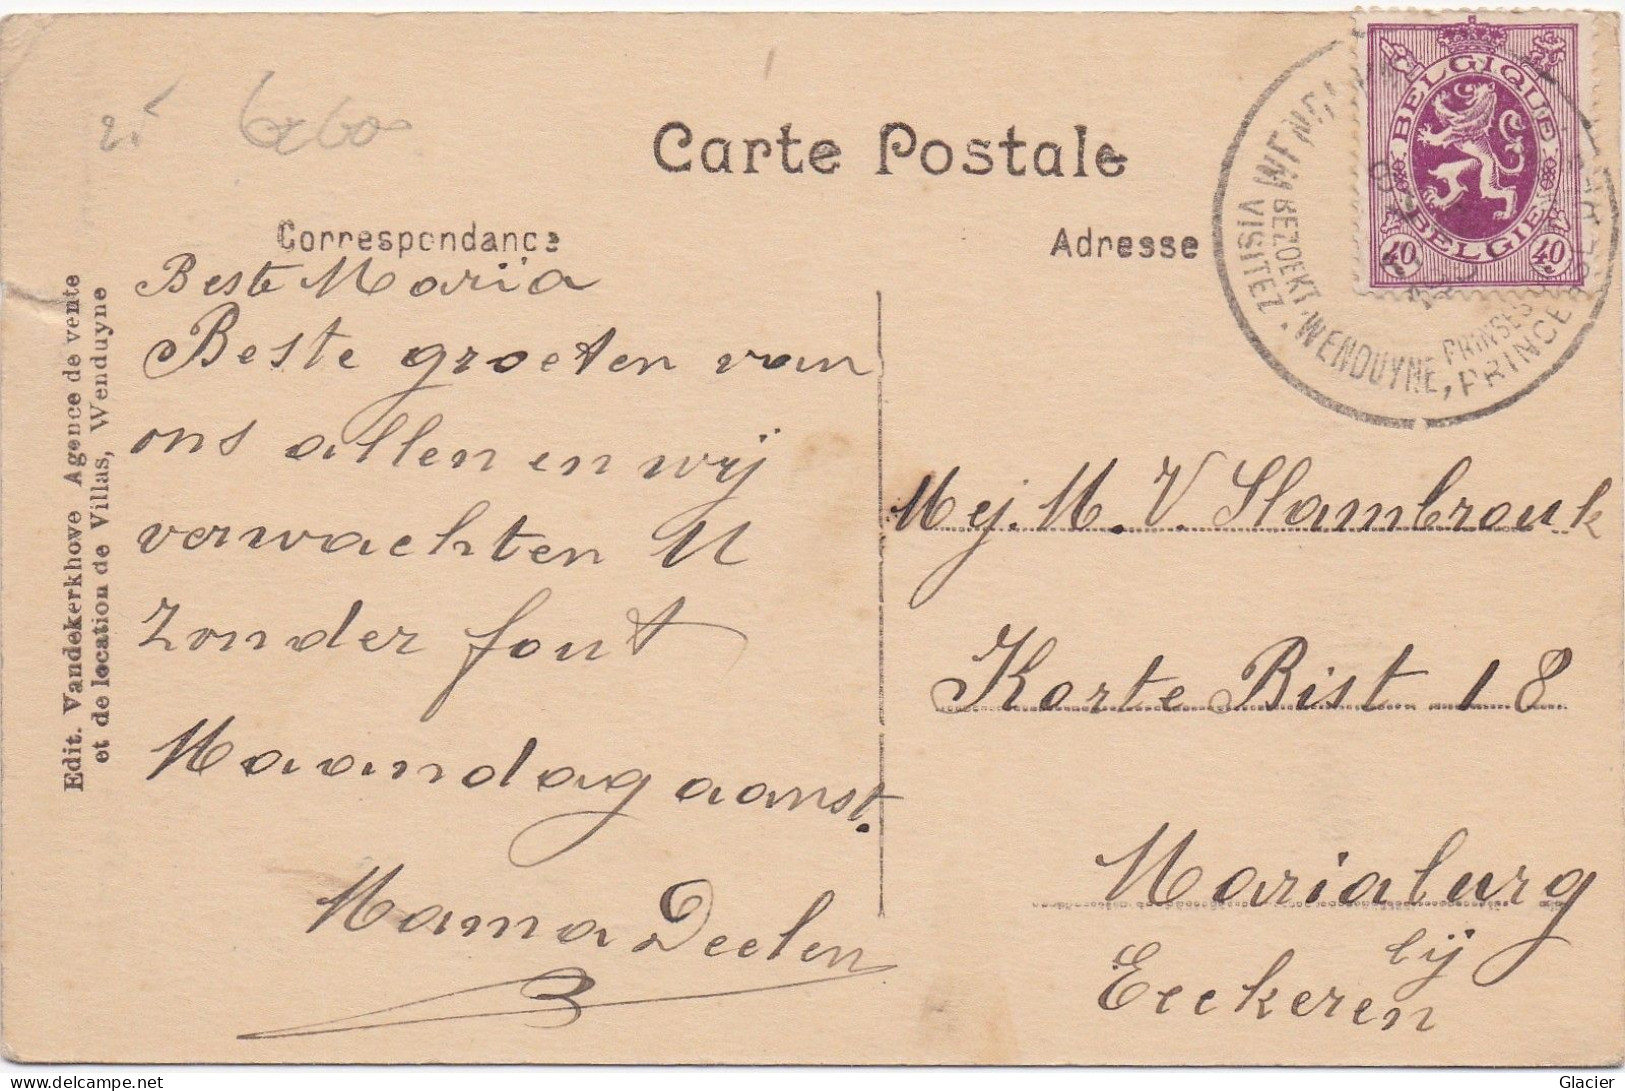 Carte Postale
Correspondance
Adresse
Edit. Vandekerkhowe Agence de vente
et de location de Villas, Wenduyne
Beste Maria
Beste groeten van
ons allen en wij
verwachten U
zonder fout
Maandag aanst.
Mama Deelen
BELGIQUE
BELGIE
40 40
VISITEZ
BEZOEKT · WENDUYNE, PRINCE
PRINSES
Mej. M. V. Slambrouk
Korte Bist 18
Mariaburg
bij
Eeckeren
Glacier